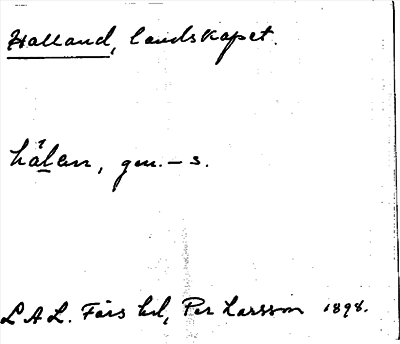 Halland, landskapet.
hálen, gen. – s.
L A L. Färs hd, Per Larsson 1898.